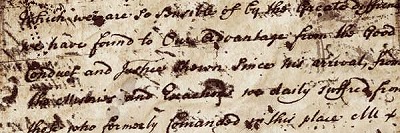 Which we are so Sencible of by the Greate differen
we have found to Our advantage from the Good
Conduct and Justice Shown Since his arrival, from
the Miseries and we daily Suffred from
those who formerly Comanded in this place All